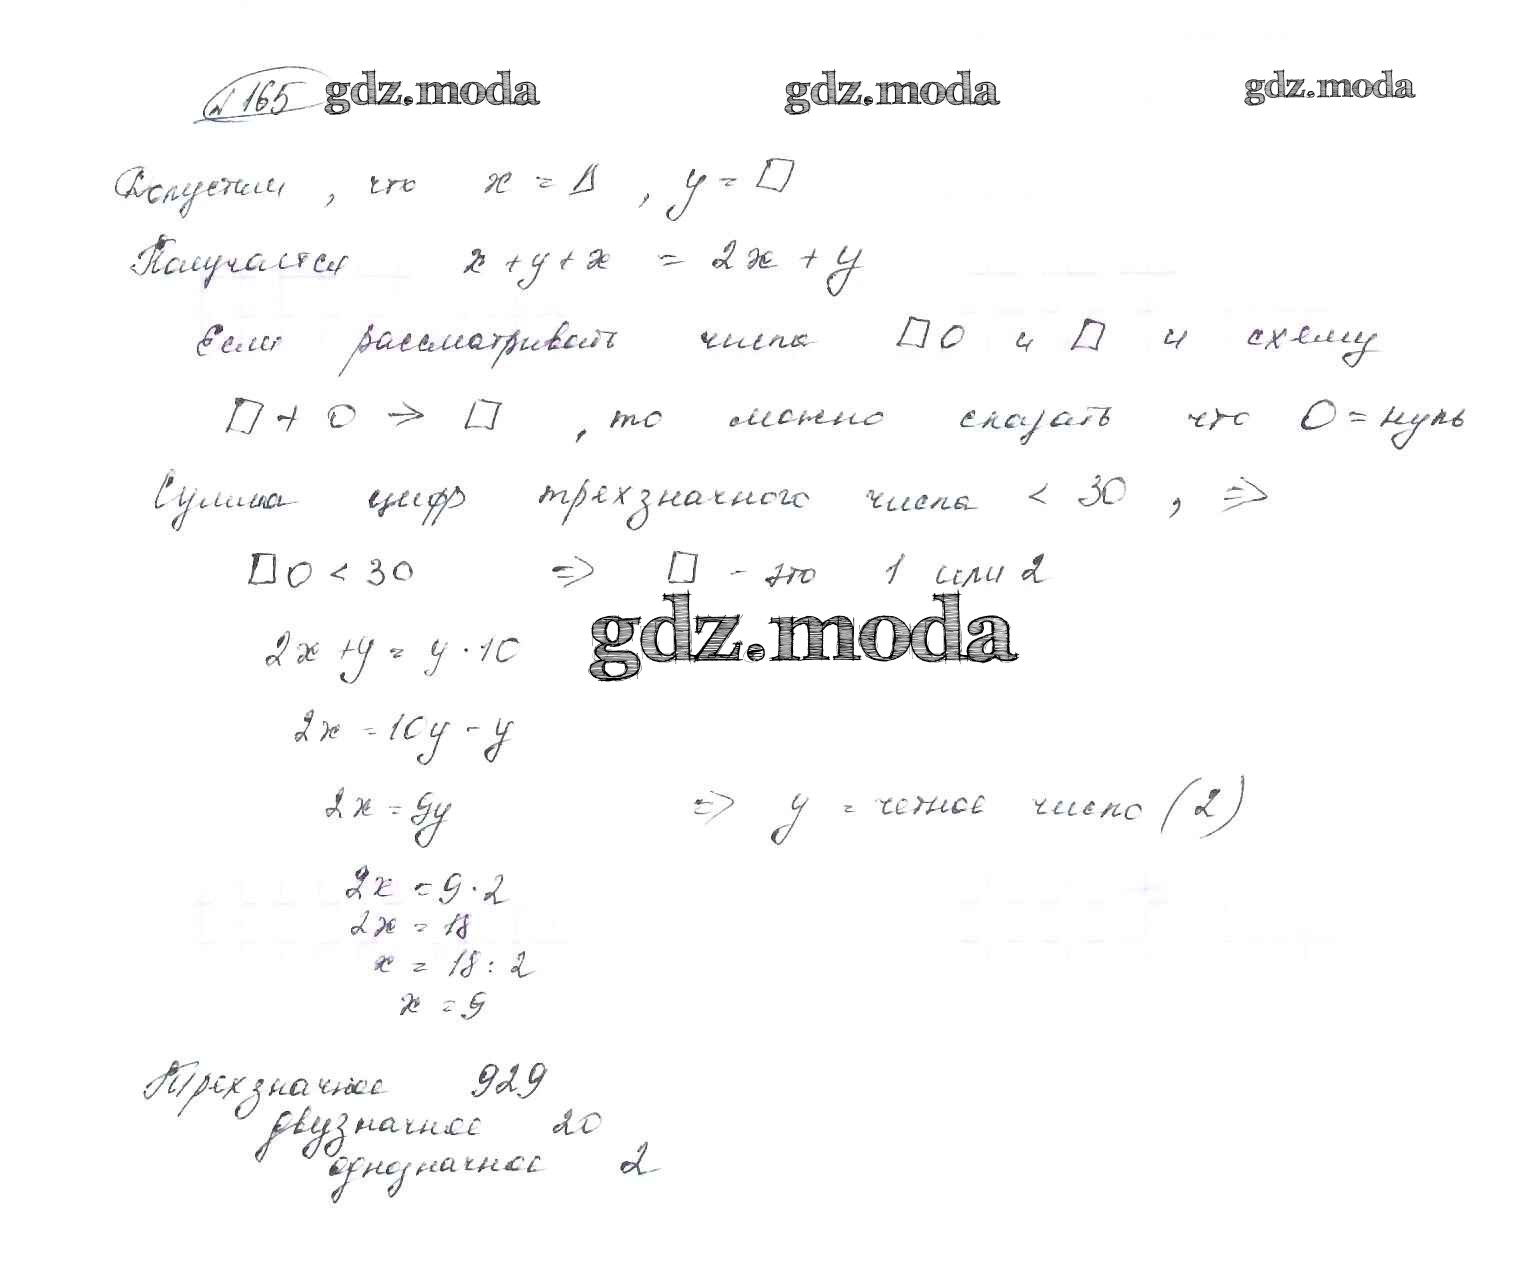 №165 gdz.moda gdz.moda gdz.moda
Допустим, что x = Δ, y = □
Получается x + y + x = 2x + y
Если рассматривать числа □0 и □ и схему
□ + 0 → □, то можно сказать что 0 = нуль
Сумма цифр трехзначного числа < 30, ⇒
□0 < 30 ⇒ □ - это 1 или 2
gdz.moda
2x + y = y · 10
2x = 10y - y
2x = 9y ⇒ y = четное число (2)
2x = 9 · 2
2x = 18
x = 18 : 2
x = 9
Трехзначное 929
двузначное 20
однозначное 2